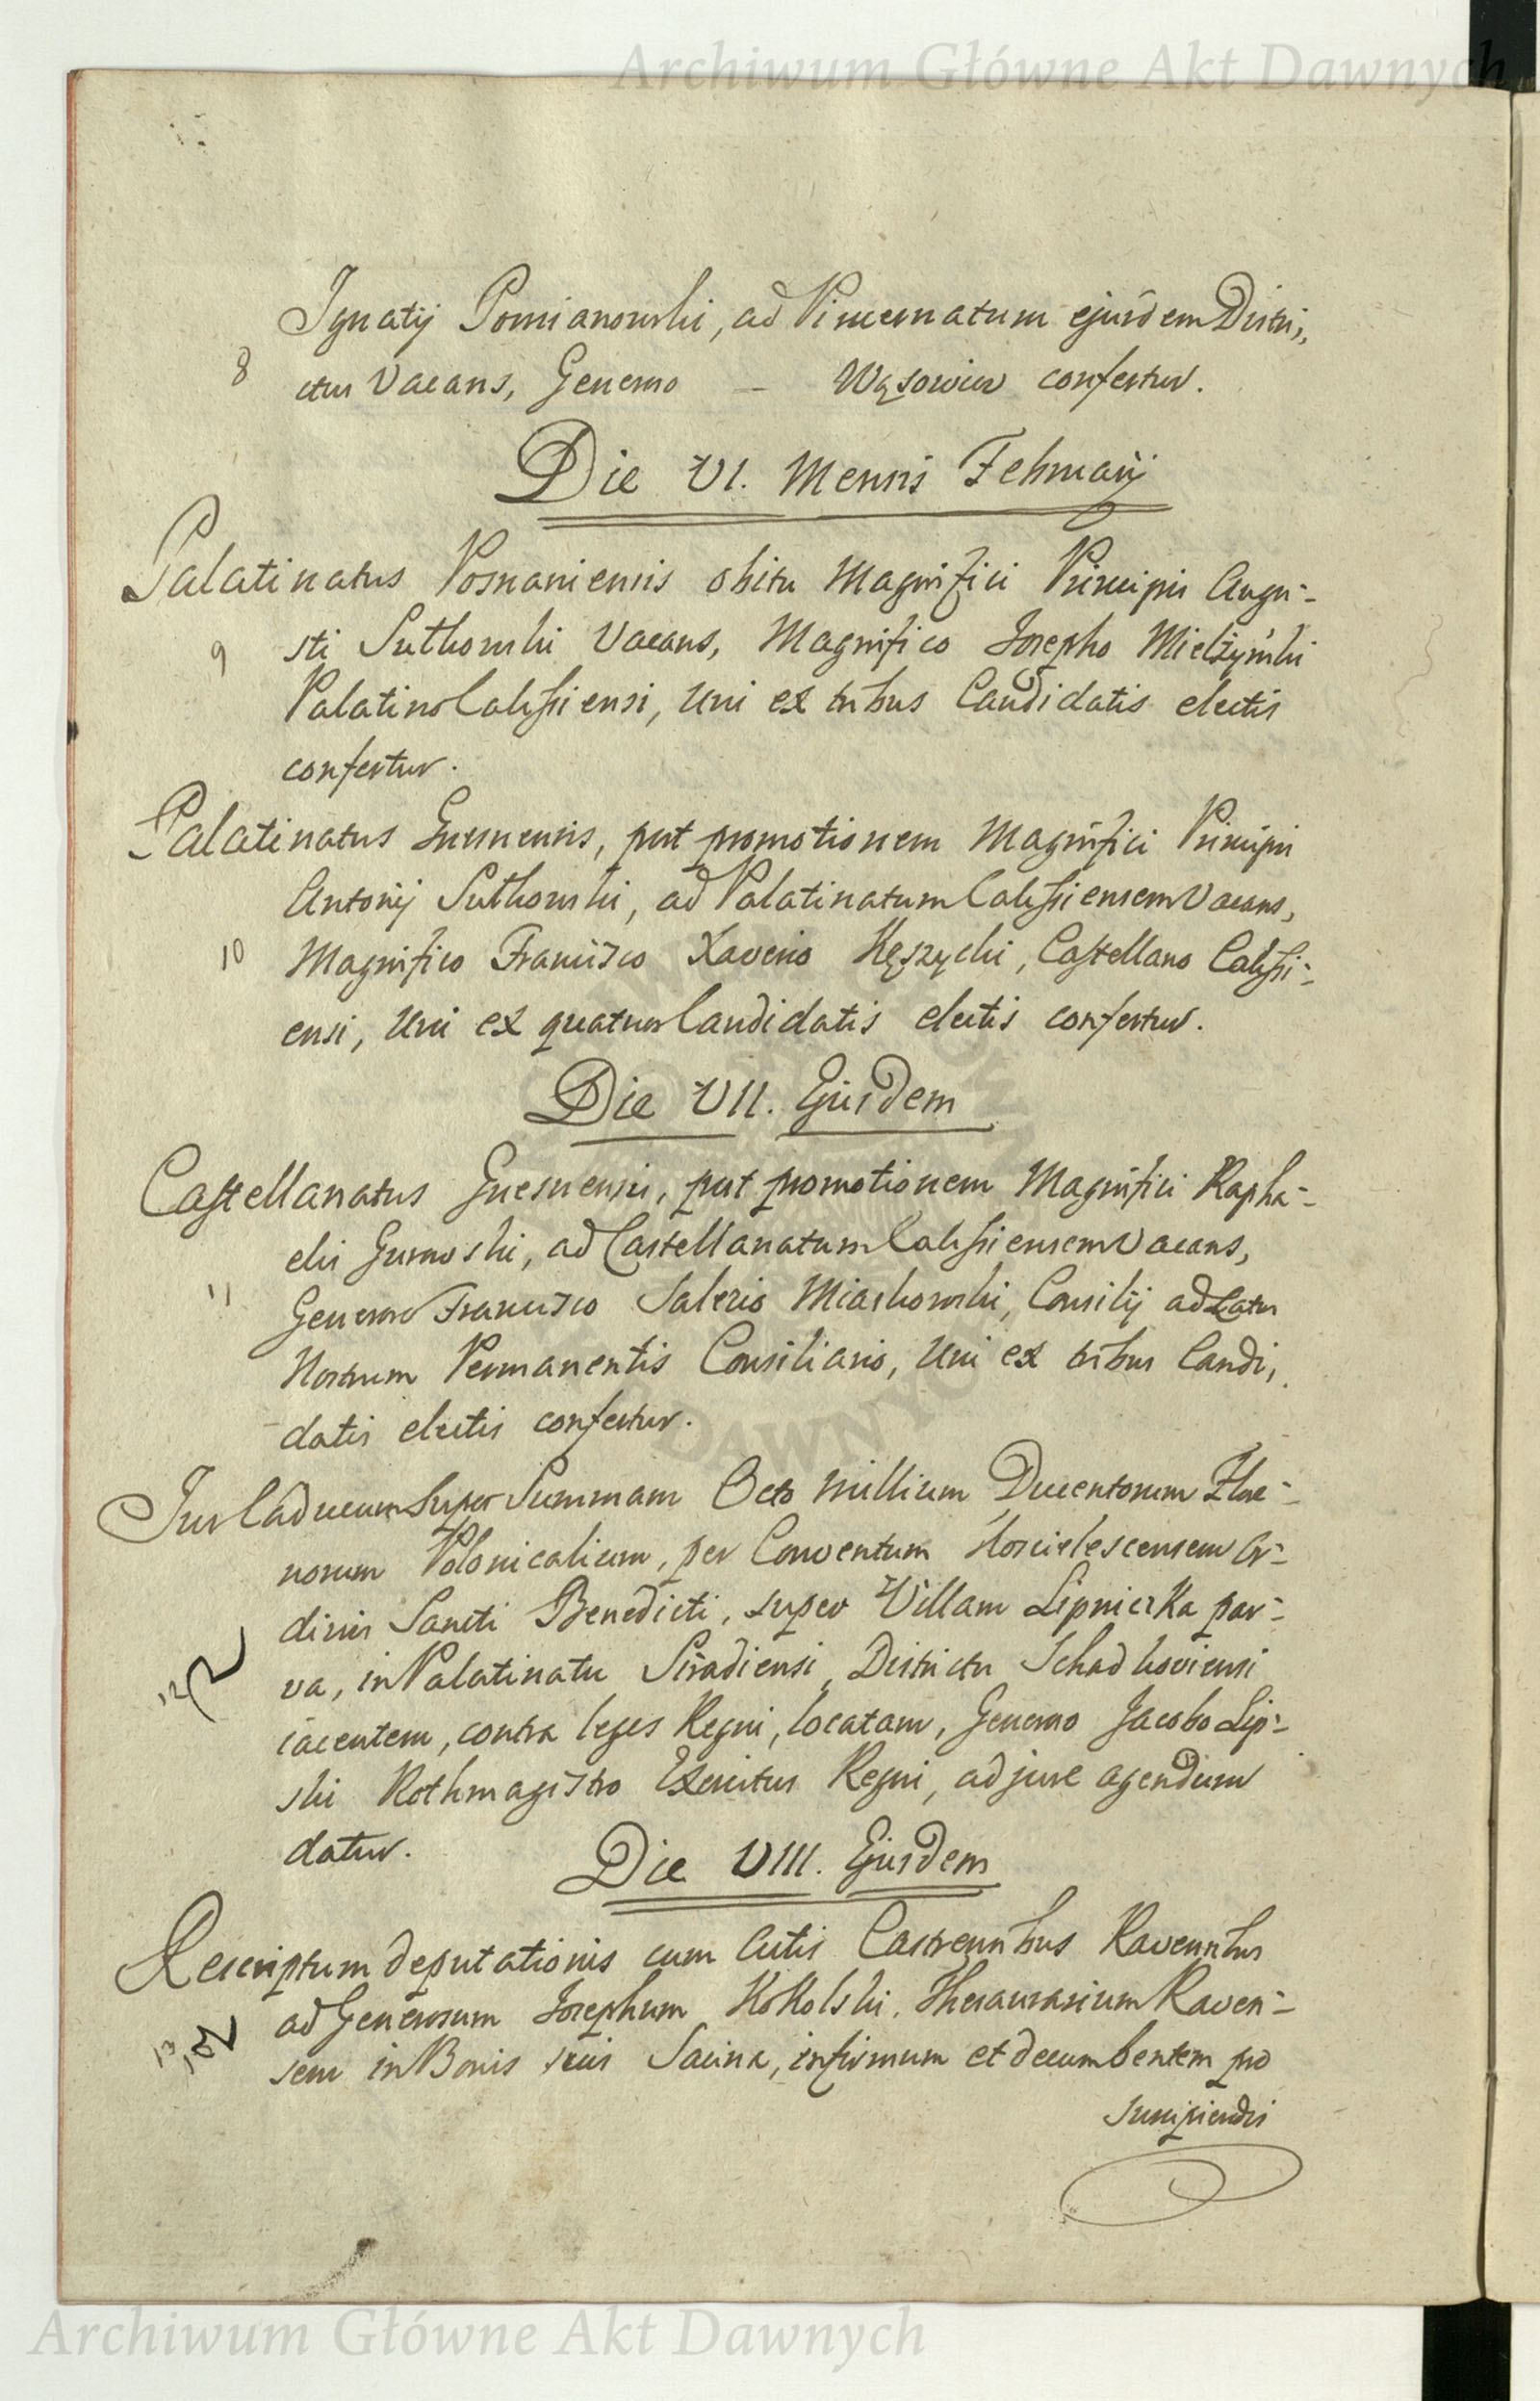 Archiwum Główne Akt Dawnych
Ignatij Pomianowski, ad Pincernatum ejusdem Distri„
8 ctus Vacans, Generoso — Wąsowicz confertur.
Die VI. Mensis Februarij
Palatinatus Posnaniensis obitu Magnifici Principis Augu=
9 sti Sułkowski Vacans, Magnifico Josepho Mielżyński
Palatino Calissiensi, Uni ex tribus Candidatis electis
confertur.
Palatinatus Gnesnensis, post promotionem Magnifici Principis
Antonij Sułkowski, ad Palatinatum Calissiensem Vacans,
10 Magnifico Francisco Xaverio Kęszycki, Castellano Calissi=
ensi, Uni ex quatuor Candidatis electis confertur.
Die VII. Ejusdem
Castellanatus Gnesnensis, post promotionem Magnifici Rapha=
elis Gurowski, ad Castellanatum Calissiensem Vacans,
11 Generoso Francisco Salezio Miaskowski, Consilij ad Latus
Nostrum Permanentis Consiliario, Uni ex tribus Candi„
datis electis confertur.
Jus Caducum super Summam Octo Millium Ducentorum Flore=
norum Polonicalium, per Conventum Koscielescensem Or=
dinis Sancti Benedicti, super Villam Lipniczka par=
12 va, in Palatinatu Siradiensi, Districtu Schadkoviensi
iacentem, contra leges Regni, locatam, Generoso Jacobo Lip=
ski Rothmagistro Exercitus Regni, ad jure agendum
datur.
Die VIII. Ejusdem
Rescriptum deputationis cum Actis Castrensibus Ravensibus
ad Generosum Josephum KoKolski, Thesaurarium Raven=
13 sem in Bonis suis Sacina, infirmum et decumbentem pro
suscipiendis
Archiwum Główne Akt Dawnych